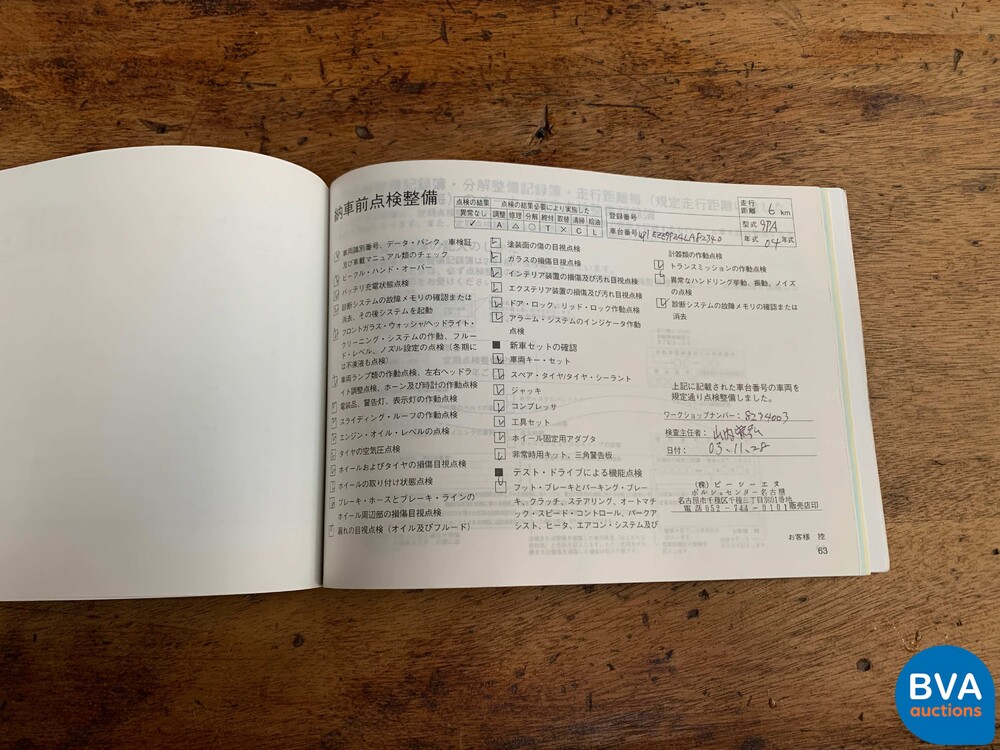 納車前点検整備
点検の結果 点検の結果必要により実施した
異常なし 調整 修理 分解 締付 取替 清掃 給油
✓ A △ ○ T × C L
登録番号
車台番号
走行距離 km
型式 9PA
年式 04年式
車両識別番号、データ・バンク、車検証
及び車載マニュアル類のチェック
ビークル・ハンド・オーバー
バッテリ充電状態点検
診断システムの故障メモリの確認または
消去、その後システムを起動
フロントガラス・ウォッシャ/ヘッドライト・
クリーニング・システムの作動、フルー
ド・レベル、ノズル設定の点検（冬期に
は不凍液も点検）
車両ランプ類の作動点検、左右ヘッドラ
イト調整点検、ホーン及び時計の作動点検
電装品、警告灯、表示灯の作動点検
スライディング・ルーフの作動点検
エンジン・オイル・レベルの点検
タイヤの空気圧点検
ホイールおよびタイヤの損傷目視点検
ホイールの取り付け状態点検
ブレーキ・ホースとブレーキ・ラインの
ホイール周辺部の損傷目視点検
漏れの目視点検（オイル及びフルード）
塗装面の傷の目視点検
ガラスの損傷目視点検
インテリア装置の損傷及び汚れ目視点検
エクステリア装置の損傷及び汚れ目視点検
ドア・ロック、リッド・ロック作動点検
アラーム・システムのインジケータ作動
点検
■ 新車セットの確認
車両キー・セット
スペア・タイヤ/タイヤ・シーラント
ジャッキ
コンプレッサ
工具セット
ホイール固定用アダプタ
非常時用キット、三角警告板
■ テスト・ドライブによる機能点検
フット・ブレーキとパーキング・ブレー
キ、クラッチ、ステアリング、オートマチ
ック・スピード・コントロール、パークア
シスト、ヒータ、エアコン・システム及び
計器類の作動点検
トランスミッションの作動点検
異常なハンドリング挙動、振動、ノイズ
の点検
診断システムの故障メモリの確認または
消去
上記に記載された車台番号の車両を
規定通り点検整備しました。
ワークショップナンバー：8274003
検査主任者：
日付： 03.11.28
（株）ピーシーエヌ
ポルシェセンター名古屋
名古屋市千種区千種三丁目3601番地
電話 052-744-0101 販売店印
お客様 控
63
BVA
auctions